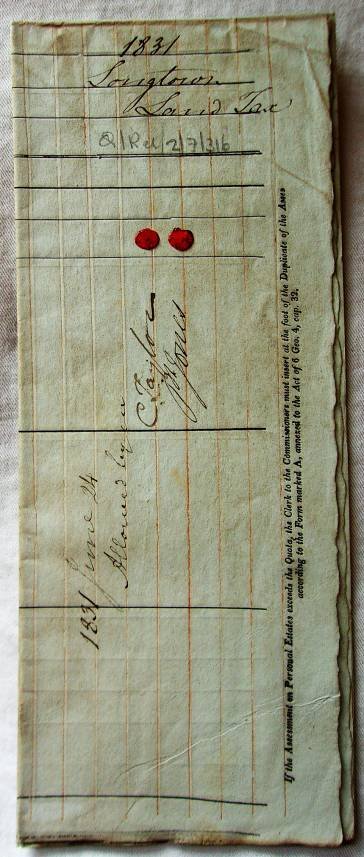 1831
Longtown
Land Tax
Q/Rel 2/7/316
1831 June 24
Allowed by us
C Taylor
Jones
If the Assessment on Personal Estates exceeds the Quota, the Clerk to the Commissioners must insert at the foot of the Duplicate of the Asses
according to the Form marked A, annexed to the Act of 6 Geo. 4, cap. 32.